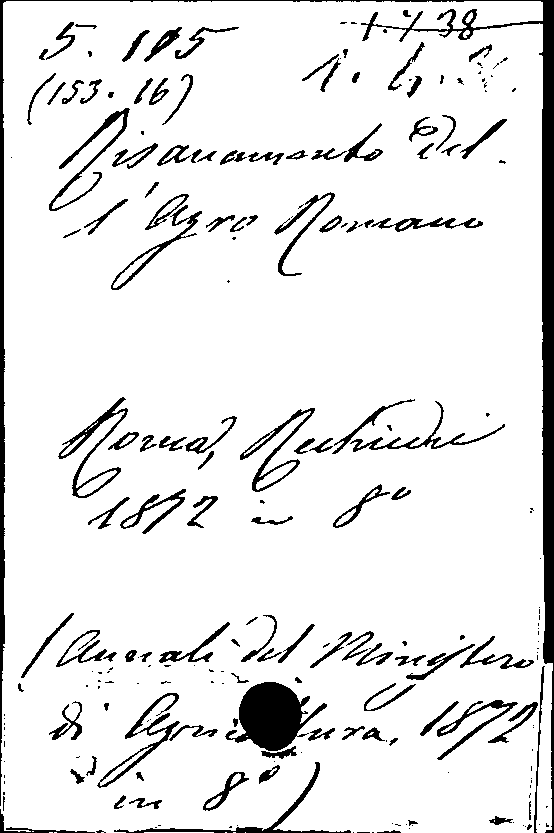 5. 195 1.7 38
(153. 16) 1. h.
Risanamento del
l'Agro Romano
Roma, Rechiedei
1872 in 8º
(Annali del Ministero
di Agricoltura, 1872
in 8º)